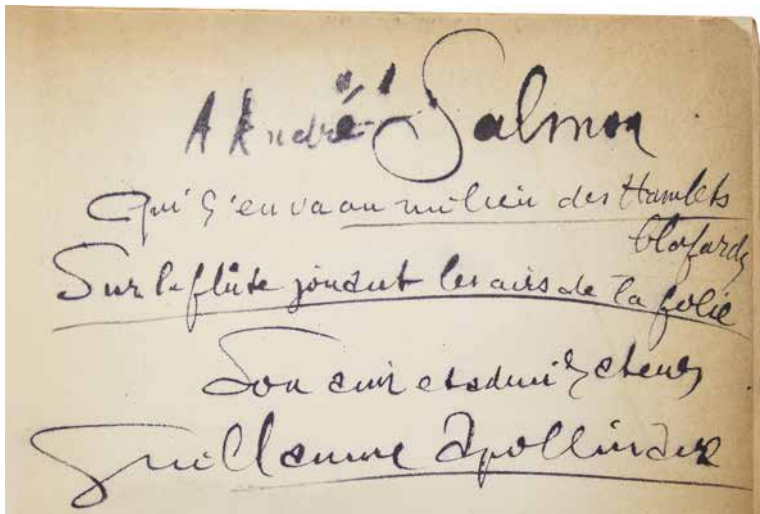 A André Salmon
Qui s'en va au milieu des Hamlets
blafards
Sur la flûte jouant les airs de la folie
Son ami et admirateur
Guillaume Apollinaire